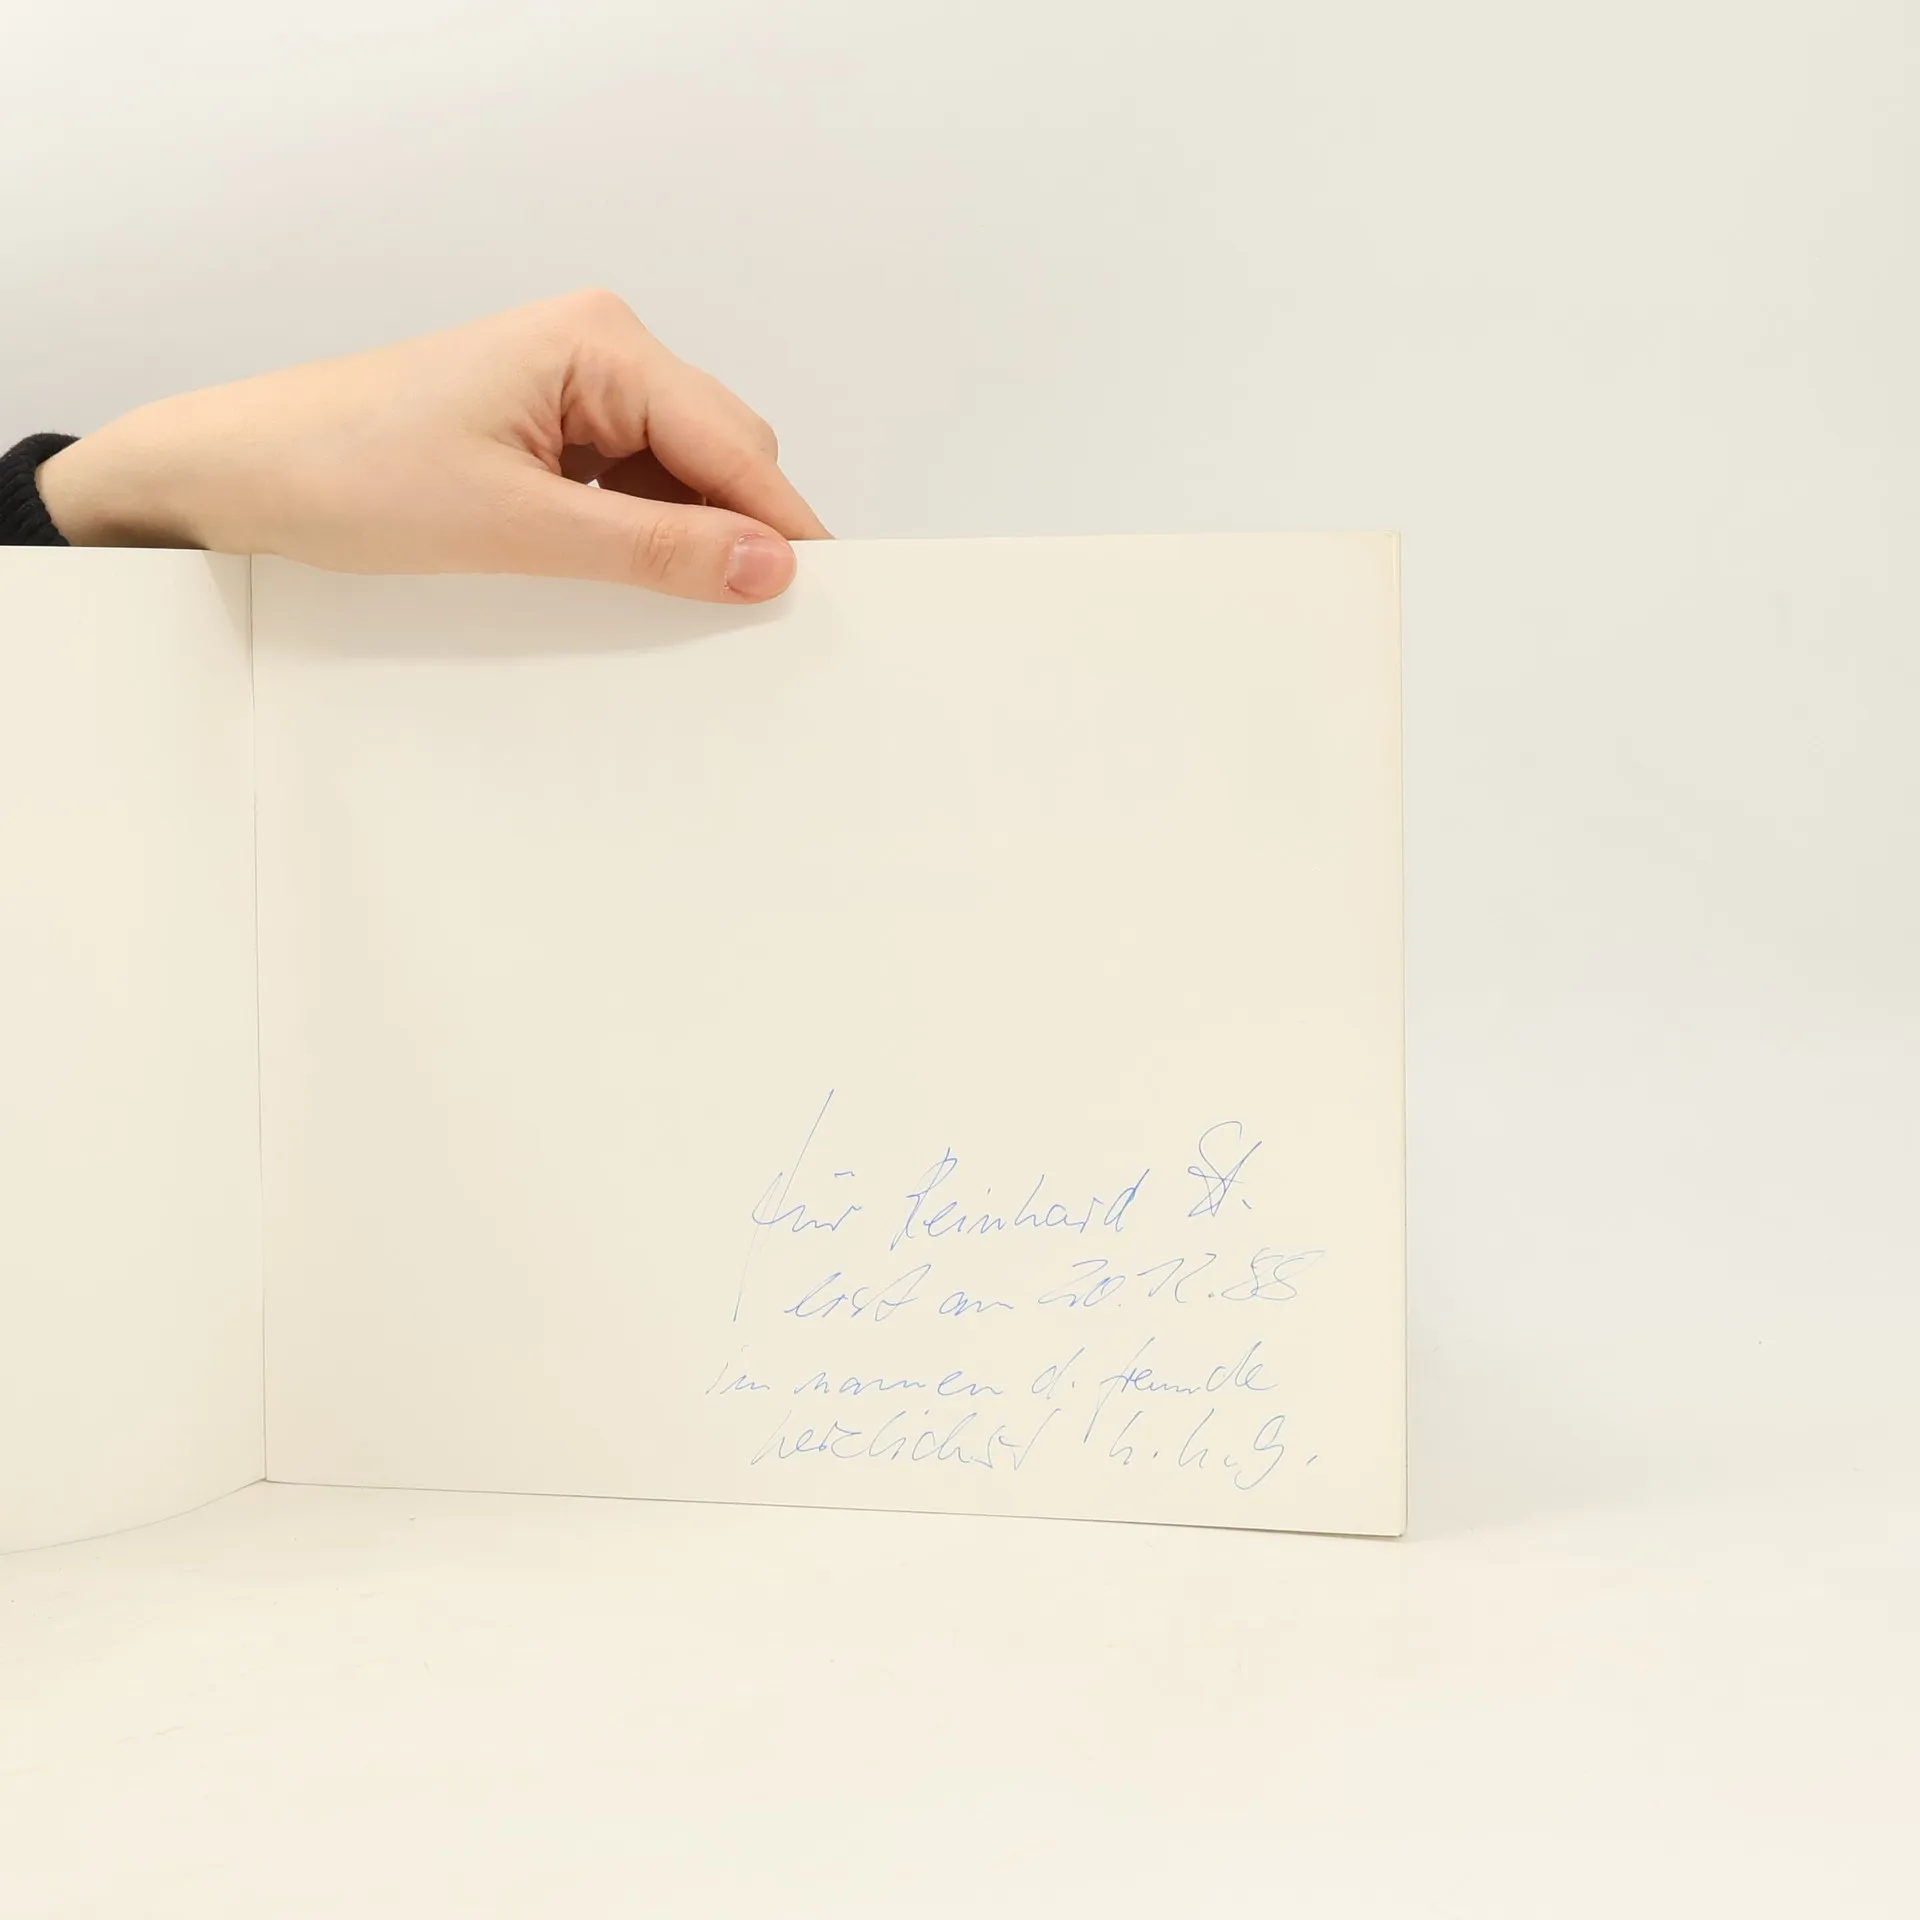 für Reinhard St.
erst am 20.12.88
im namen d. freunde
herzlichst h.h.g.